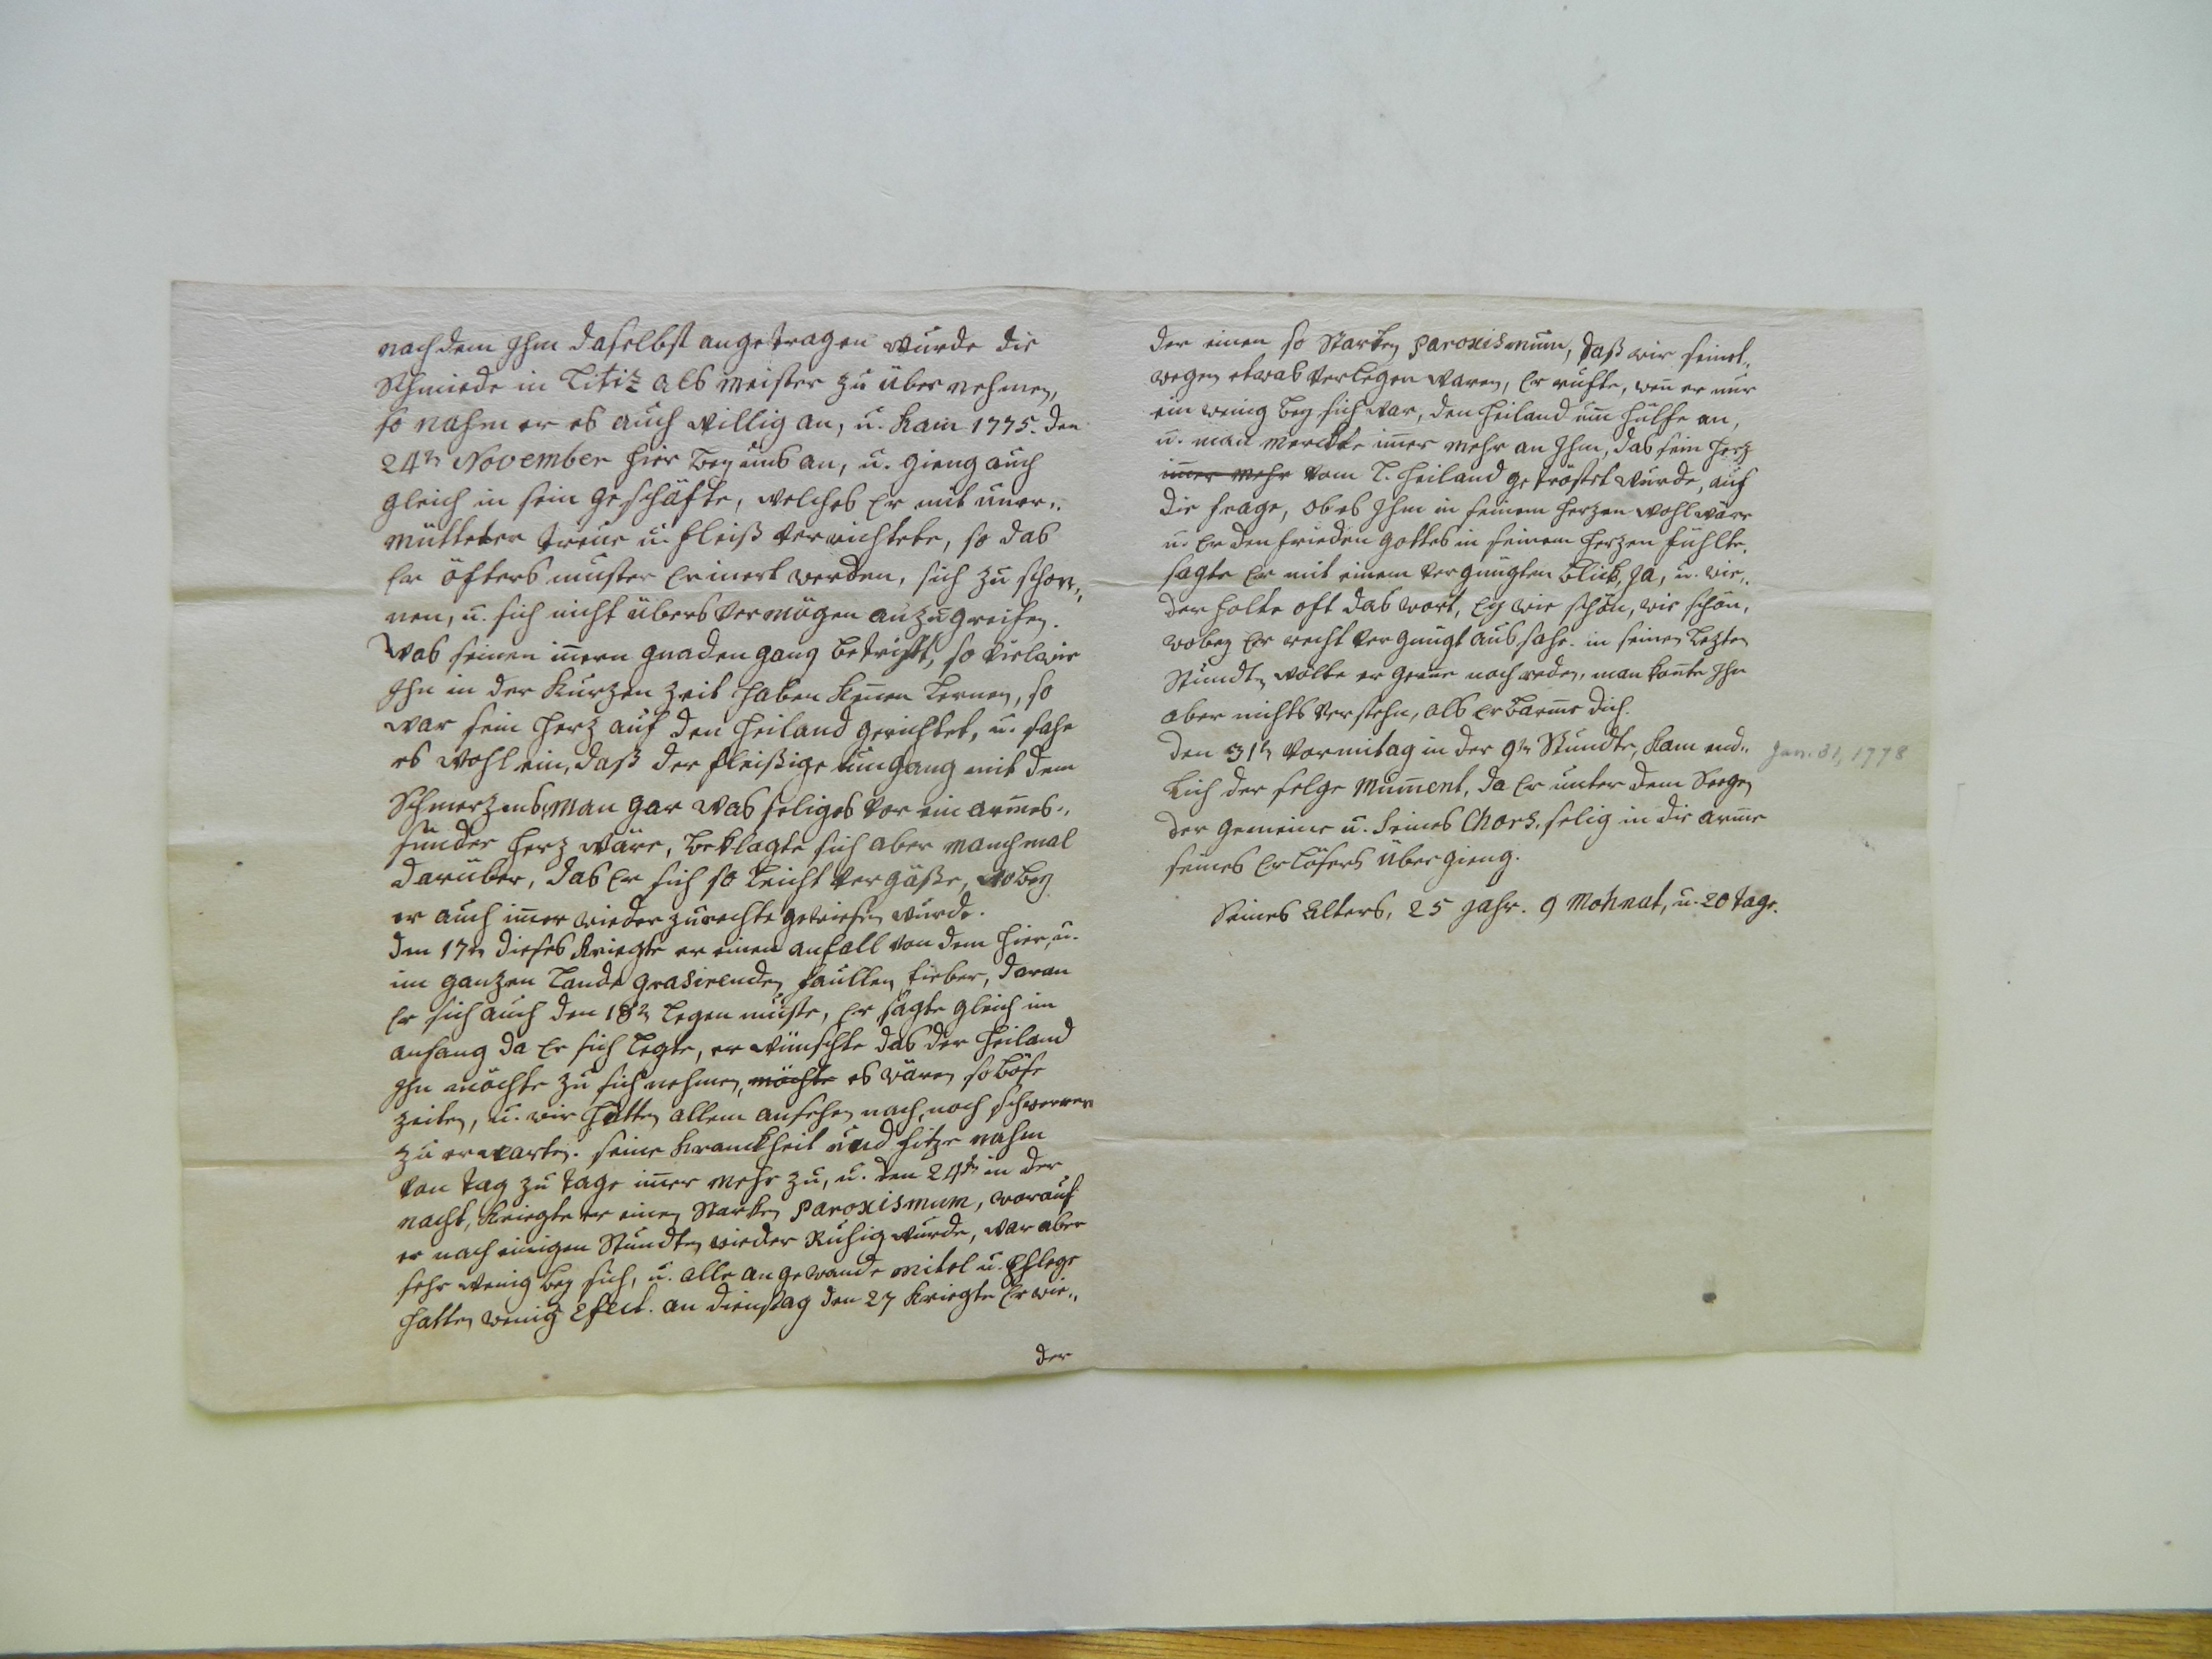 nach dem Ihm daselbst angetragen wurde die
Schmiede in Litiz als Meister zu über nehmen,
so nahm er es auch willig an, u. kam 1775. den
24tn November hier bey uns an, u. gieng auch
gleich in sein geschäfte, welches Er mit uner„
mütteter treue u. fleiß verrichtete, so das
Er öfters muste Erinert werden, sich zu schon„
nen, u. sich nicht übers vermögen anzugreifen.
Was seinen inern gnaden gang betrift, so viel wir
Ihn in der kurzen zeit haben kenen lernen, so
war sein Herz auf den Heiland gerichtet, u. sahe
es wohl ein, daß der fleißige umgang mit dem
Schmerzens Man gar was seliges vor ein armes„
sünder Herz wäre, beklagte sich aber manchmal
darüber, das Er sich so leicht vergäße, wobey
er auch imer wieder zurechte gewiesen wurde.
den 17tn dieses kriegte er einen anfall von dem hier, u.
im ganzen lande grasirenden faullen fieber, daran
Er sich auch den 18tn legen muste, Er sagte gleich im
anfang da Er sich legte, er wünschte das der Heiland
Ihn möchte zu sich nehmen, möchte es wären so böse
zeiten, u. wir hätten allem ansehen nach, noch schwerere
zu erwarten. seine kranckheit und hitze nahm
von tag zu tage imer mehr zu, u. den 24tn in der
nacht, kriegte er einen starken Paroxismum, worauf
er nach einigen Stundten wieder Ruhig wurde, war aber
sehr wenig bey sich, u. alle angewande mitel u. Pflege
hatten wenig Efect. an dienstag den 27 kriegte Er wie„
der
der einen so starken Paroxismum, daß wir seinet„
wegen etwas verlegen waren, Er rufte, wen er nur
ein wenig bey sich war, den Heiland um hülfe an,
u. man merckte imer mehr an Ihm, das sein Herz
imer mehr vom l. Heiland getröstet wurde, auf
die frage, ob es Ihm in seinem Herzen wohl wäre
u. Er den frieden gottes in seinem Herzen fühlte,
sagte Er mit einem vergnügten blick, Ja, u. wie„
der holte oft das wort, Ey wie schön, wie schön,
wobey Er recht vergnügt aus sahe. in seinen lezten
Stundten wolte er gerne noch reden, man konte Ihn
aber nichts verstehn, als Erbarme dich.
den 31tn vormitag in der 9tn Stundte, kam end„
lich der selge Mument, da Er unter dem Seegen
der gemeine u. seines Chors, selig in die arme
seines Erlösers über gieng.
Jan. 31, 1778
Seines Alters, 25 Jahr. 9 Mohnat, u. 20 tage.